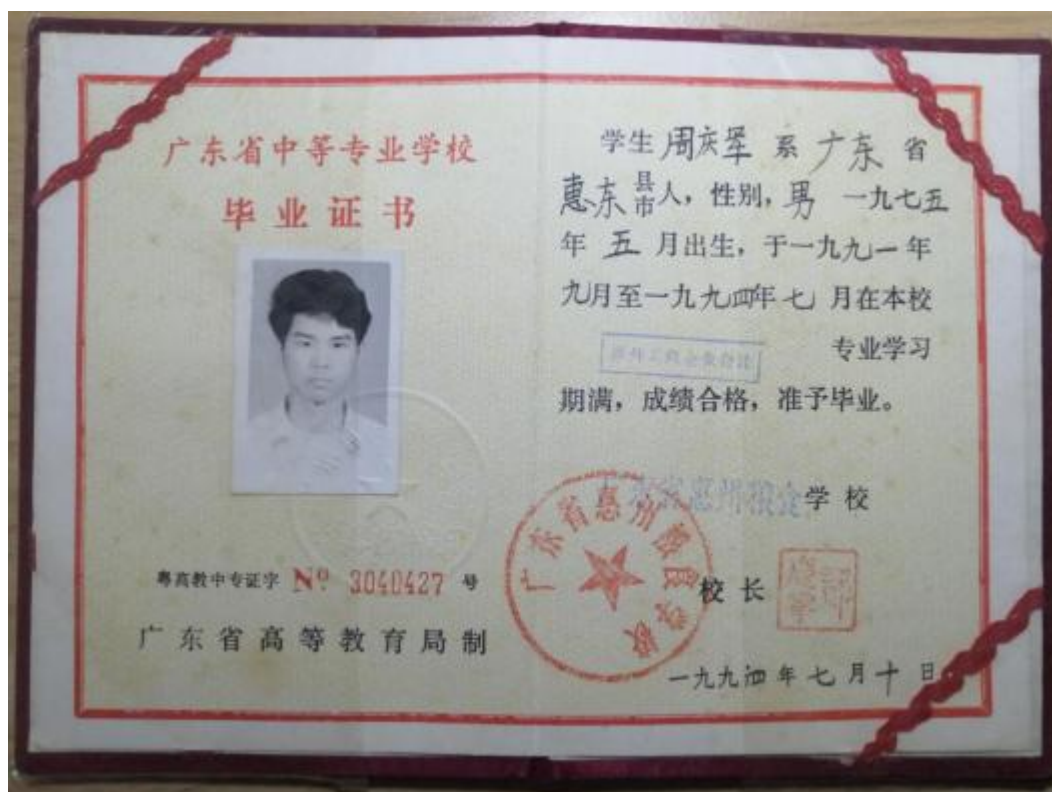 广东省中等专业学校
毕业证书
粤高教中专证字 Nº 3040427 号
广东省高等教育局制
学生 周庆军 系 广东 省
惠东 县市人，性别，男 一九七五
年 五 月出生，于一九九一年
九月至一九九四年七月在本校
专业学习
期满，成绩合格，准予毕业。
广东省惠州粮食学校
广东省惠州粮食学校
校长
一九九四年七月十日